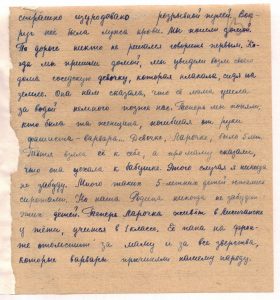 страшно изуродовано разрывной пулей. Вок-
руг неё была лужа крови. Мы пошли домой.
По дороге никто не решался говорить первым. Ко-
гда мы пришли домой, мы увидели возле своего
дома соседскую девочку, которая плакала, сидя на
земле. Она нам сказала, что её мама ушла
за водой немного позже нас. Теперь мы поняли,
кто была та женщина, погибшая от руки
фашиста варвара... Девочке, Ларочке, было 5 лет.
Тётя взяла её к себе, а про маму сказали,
что она уехала к бабушке. Этого случая я никогда
не забуду. Много таких 5-летних детей остались
сиротами. Но наша Родина никогда не забудет
этих детей. Теперь Ларочка живёт в
у тёти, учится в 1 классе. Её папа на фрон-
те отомстит за маму и за все зверства,
которые варвары причинили нашему народу.